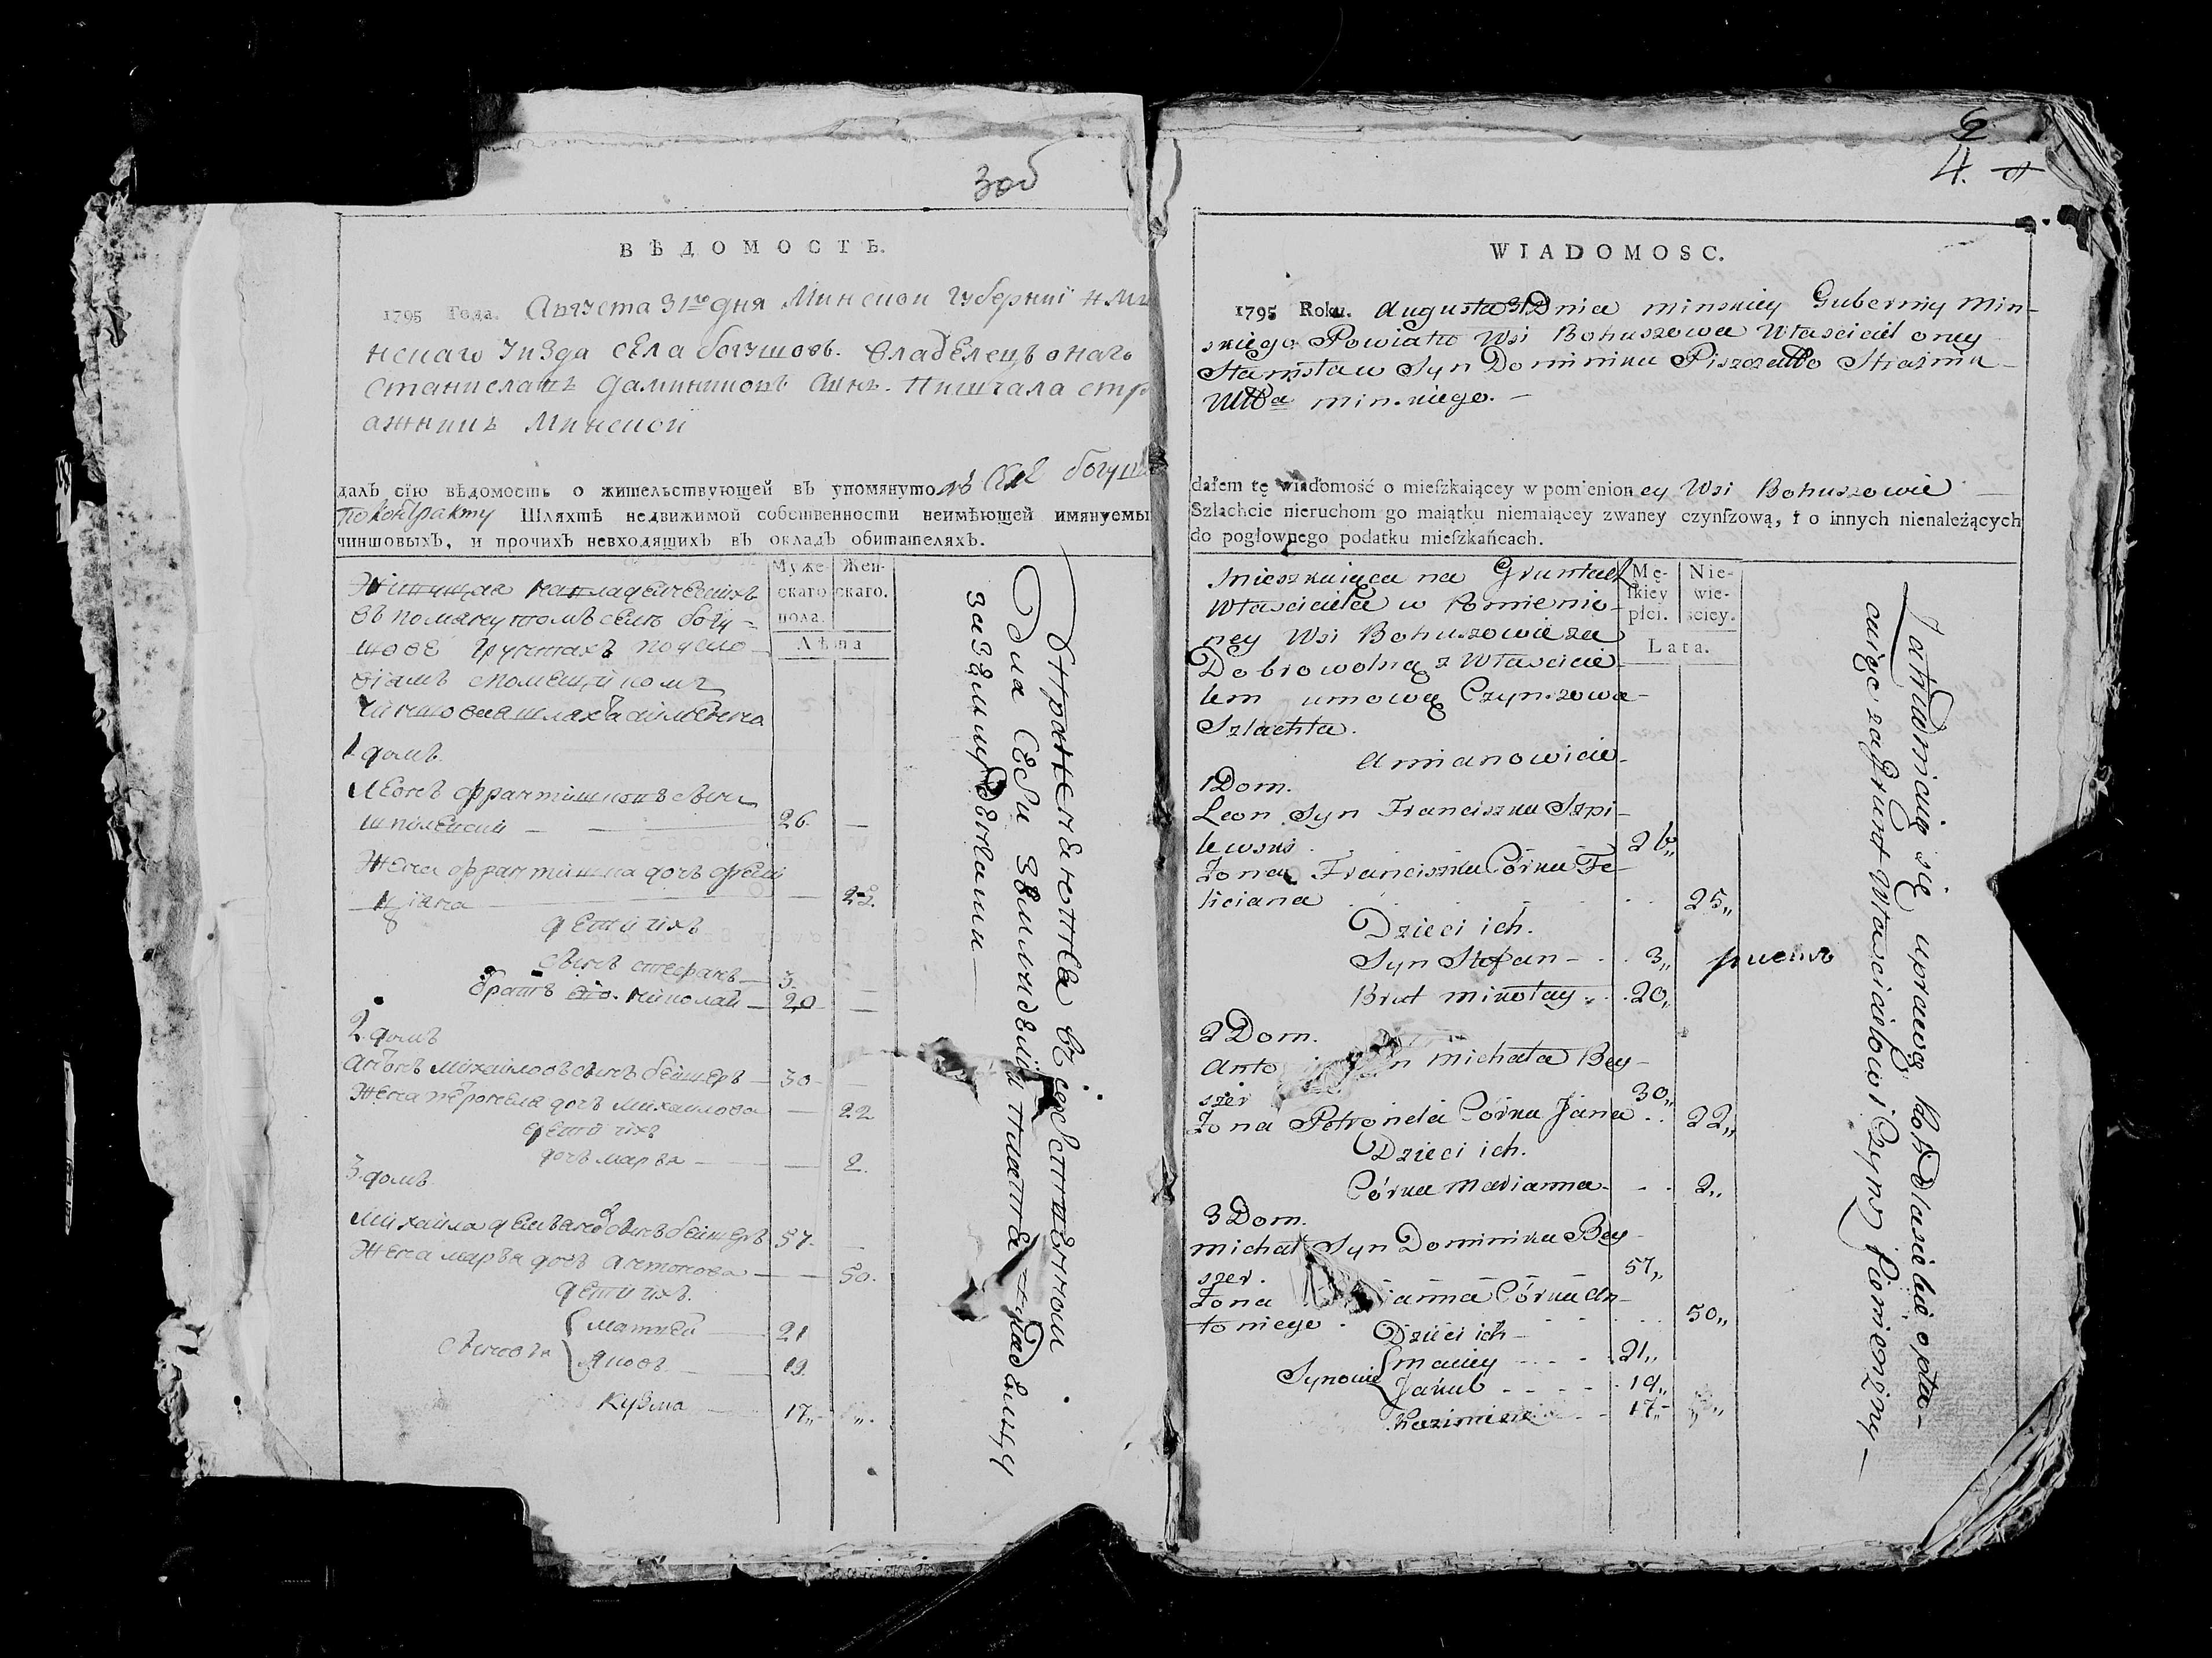 Зоб
ВѢДОМОСТЬ.
1795 Года. Августа 31го дня Минской Губернii и Ми
нскаго Уизда села богушовъ. Владелецъ онаго
Станиславъ Даминиковъ сынъ. Пищала стр
ажникъ Минской
далъ сїю вѣдомость о жительствующей въ упомянутомъ селе богуш
по контракту Шляхтѣ недвижимой собственности неимѣющей имянуемы
чиншовыхъ, и прочихъ невходящихъ въ окладъ обитателяхъ.
Муже- Жен-
скаго скаго.
пола.
Лѣта
въ помянутомъ селе богу-
шове грунтахъ по усло-
вiамъ спомещикомъ
Чиншовая шляхта аимѣнно
1 домъ.
Леонъ франтишковъ сынъ
шпилевский 26. —
Жена франтишка дочъ фели
цiяна — 25.
дети ихъ
сынъ стефанъ 3. —
братъ его. николай 20 —
2 домъ
антонъ михайловъ сынъ бейшеръ 30 —
Жена петронеля дочъ михаилова — 22
дети ихъ
дочъ маръя — 2.
3 домъ
Михайла сынъ бейшеръ 57. —
Жена маръя дочъ антонова — 50.
дети ихъ.
сыновъя { матвей 21
яковъ 19.
Кузма 17„ „.
в своСственном
эма Себи земмлиделiи плате
за землу денгами —
6
4.
WIADOMOSC.
1795 Roku. Augusta 31 Dnia minskiey Guberniy Min-
skiego Powiatu Wsi Bohuszowa Własciciel oney
Stanisław Syn Dominika Piszczałło Strażnik
Wdztwa minskiego. —
dałem tę wiadomość o mieſzkaiącey w pomienioney Wsi Bohuszowie —
Szlachcie nieruchomego maiątku niemaiącey zwaney czynſzową, i o innych nienależących
do pogłownego podatku mieſzkańcach.
Mę- Nie-
ſkiey wie-
płci. ściey.
Lata.
mieszkaiąca na Gruntach
Własciciela w Pomienio-
ney Wsi Bohuszowie za
Dobrowolną z Własciecie-
lem umową Czynszowa-
Szlachta.
a mianowicie-
1 Dom.
Leon Syn Franciszka Szpi-
lewski 26„
Zona Franciszka Córka Fe-
liciana 25„
Dzieci ich.
Syn Stefan - 3„
Brat mikołay 20„
2 Dom.
Anto n michała Bey-
szer 30„
Zona Petronela Córka Jana 22„
Dzieci ich.
Córka Marianna 2„
3 Dom.
michał Syn Dominika Bey-
szer. 57„
Zona ianna Córka An-
toniego 50„
Dzieci ich -
Synowie { maciey 21„
Jakub 19„
Kazimierz 17„ „
Zatrudniaią się uprawą koło dla siebie opła-
caiąc za Grunt Własicielowi Czynsz Pienięzny —